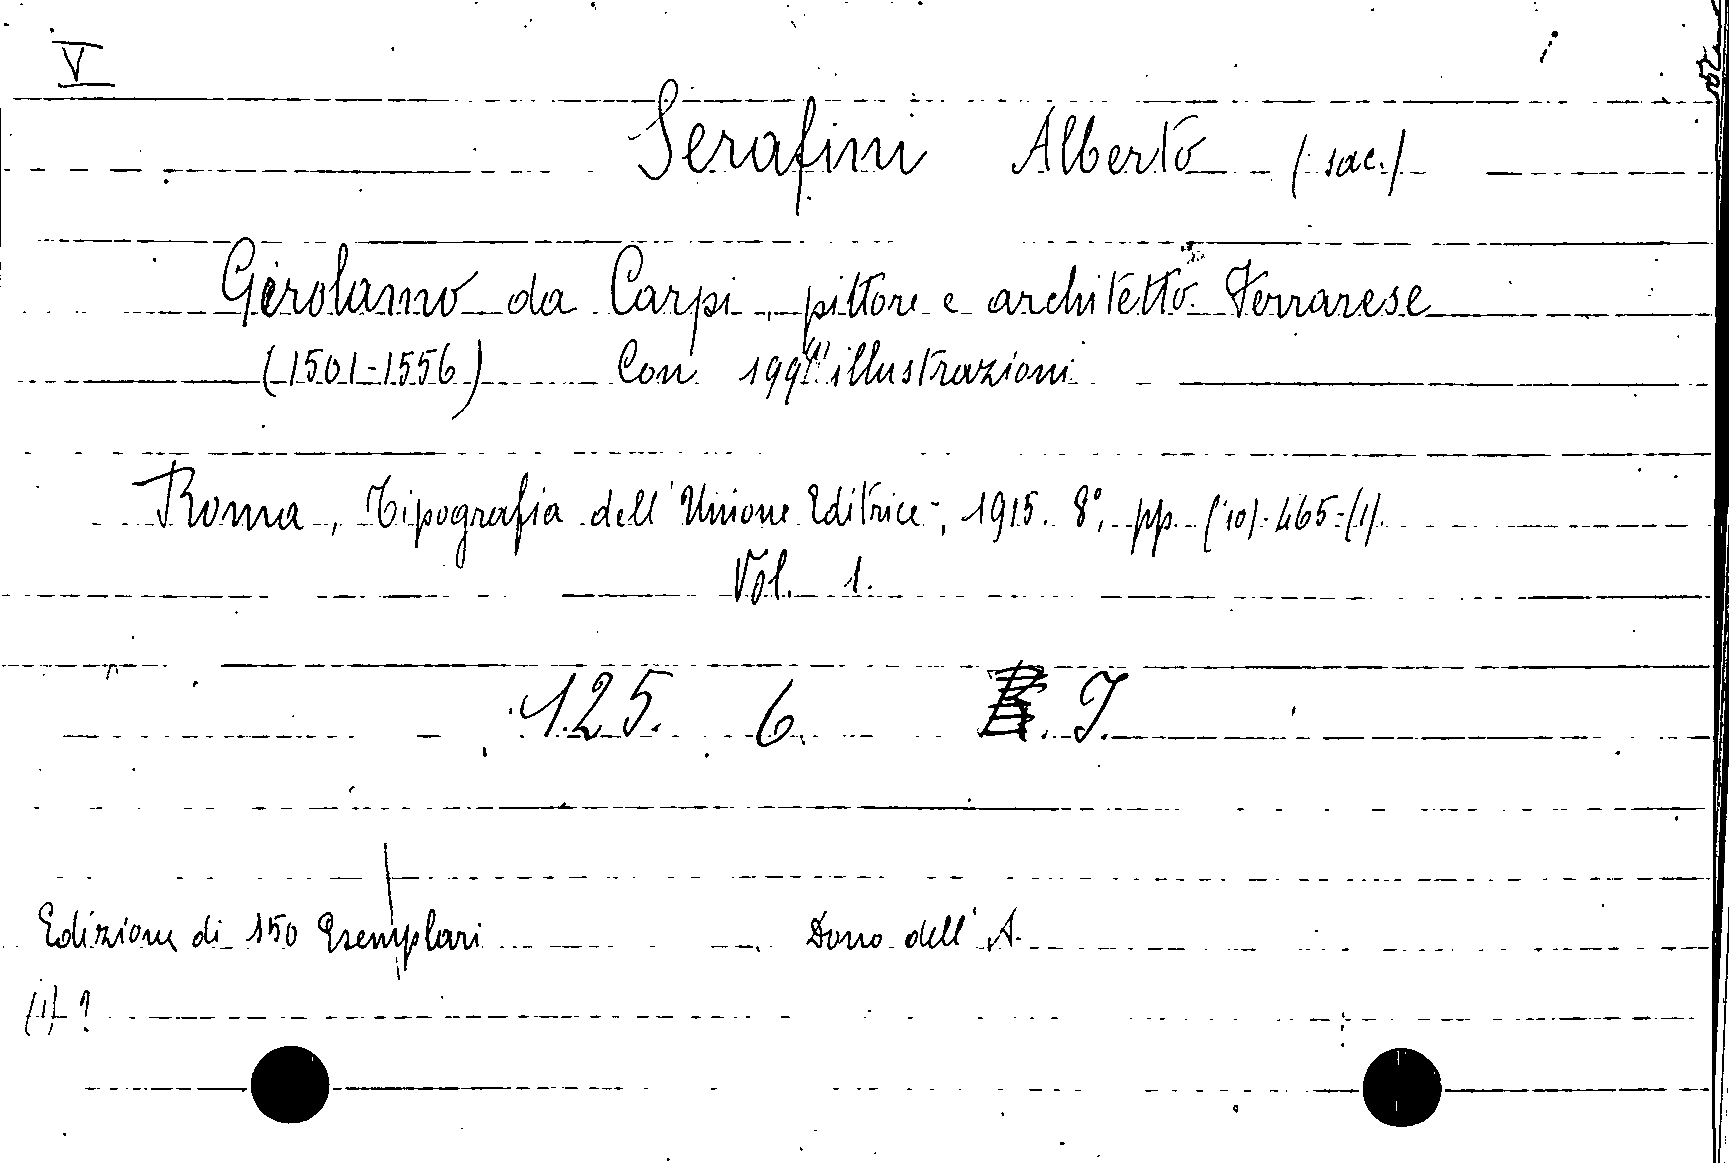 V
Serafini Alberto (sac.)
Girolamo da Carpi, pittore e architetto Ferrarese
(1501-1556) Con 199(1) illustrazioni
Roma, Tipografia dell'Unione Editrice, 1915. 8°, pp. (10)-465-(1).
Vol. 1.
125. 6. I.
Edizione di 150 Esemplari Dono dell'A.
(1) ?